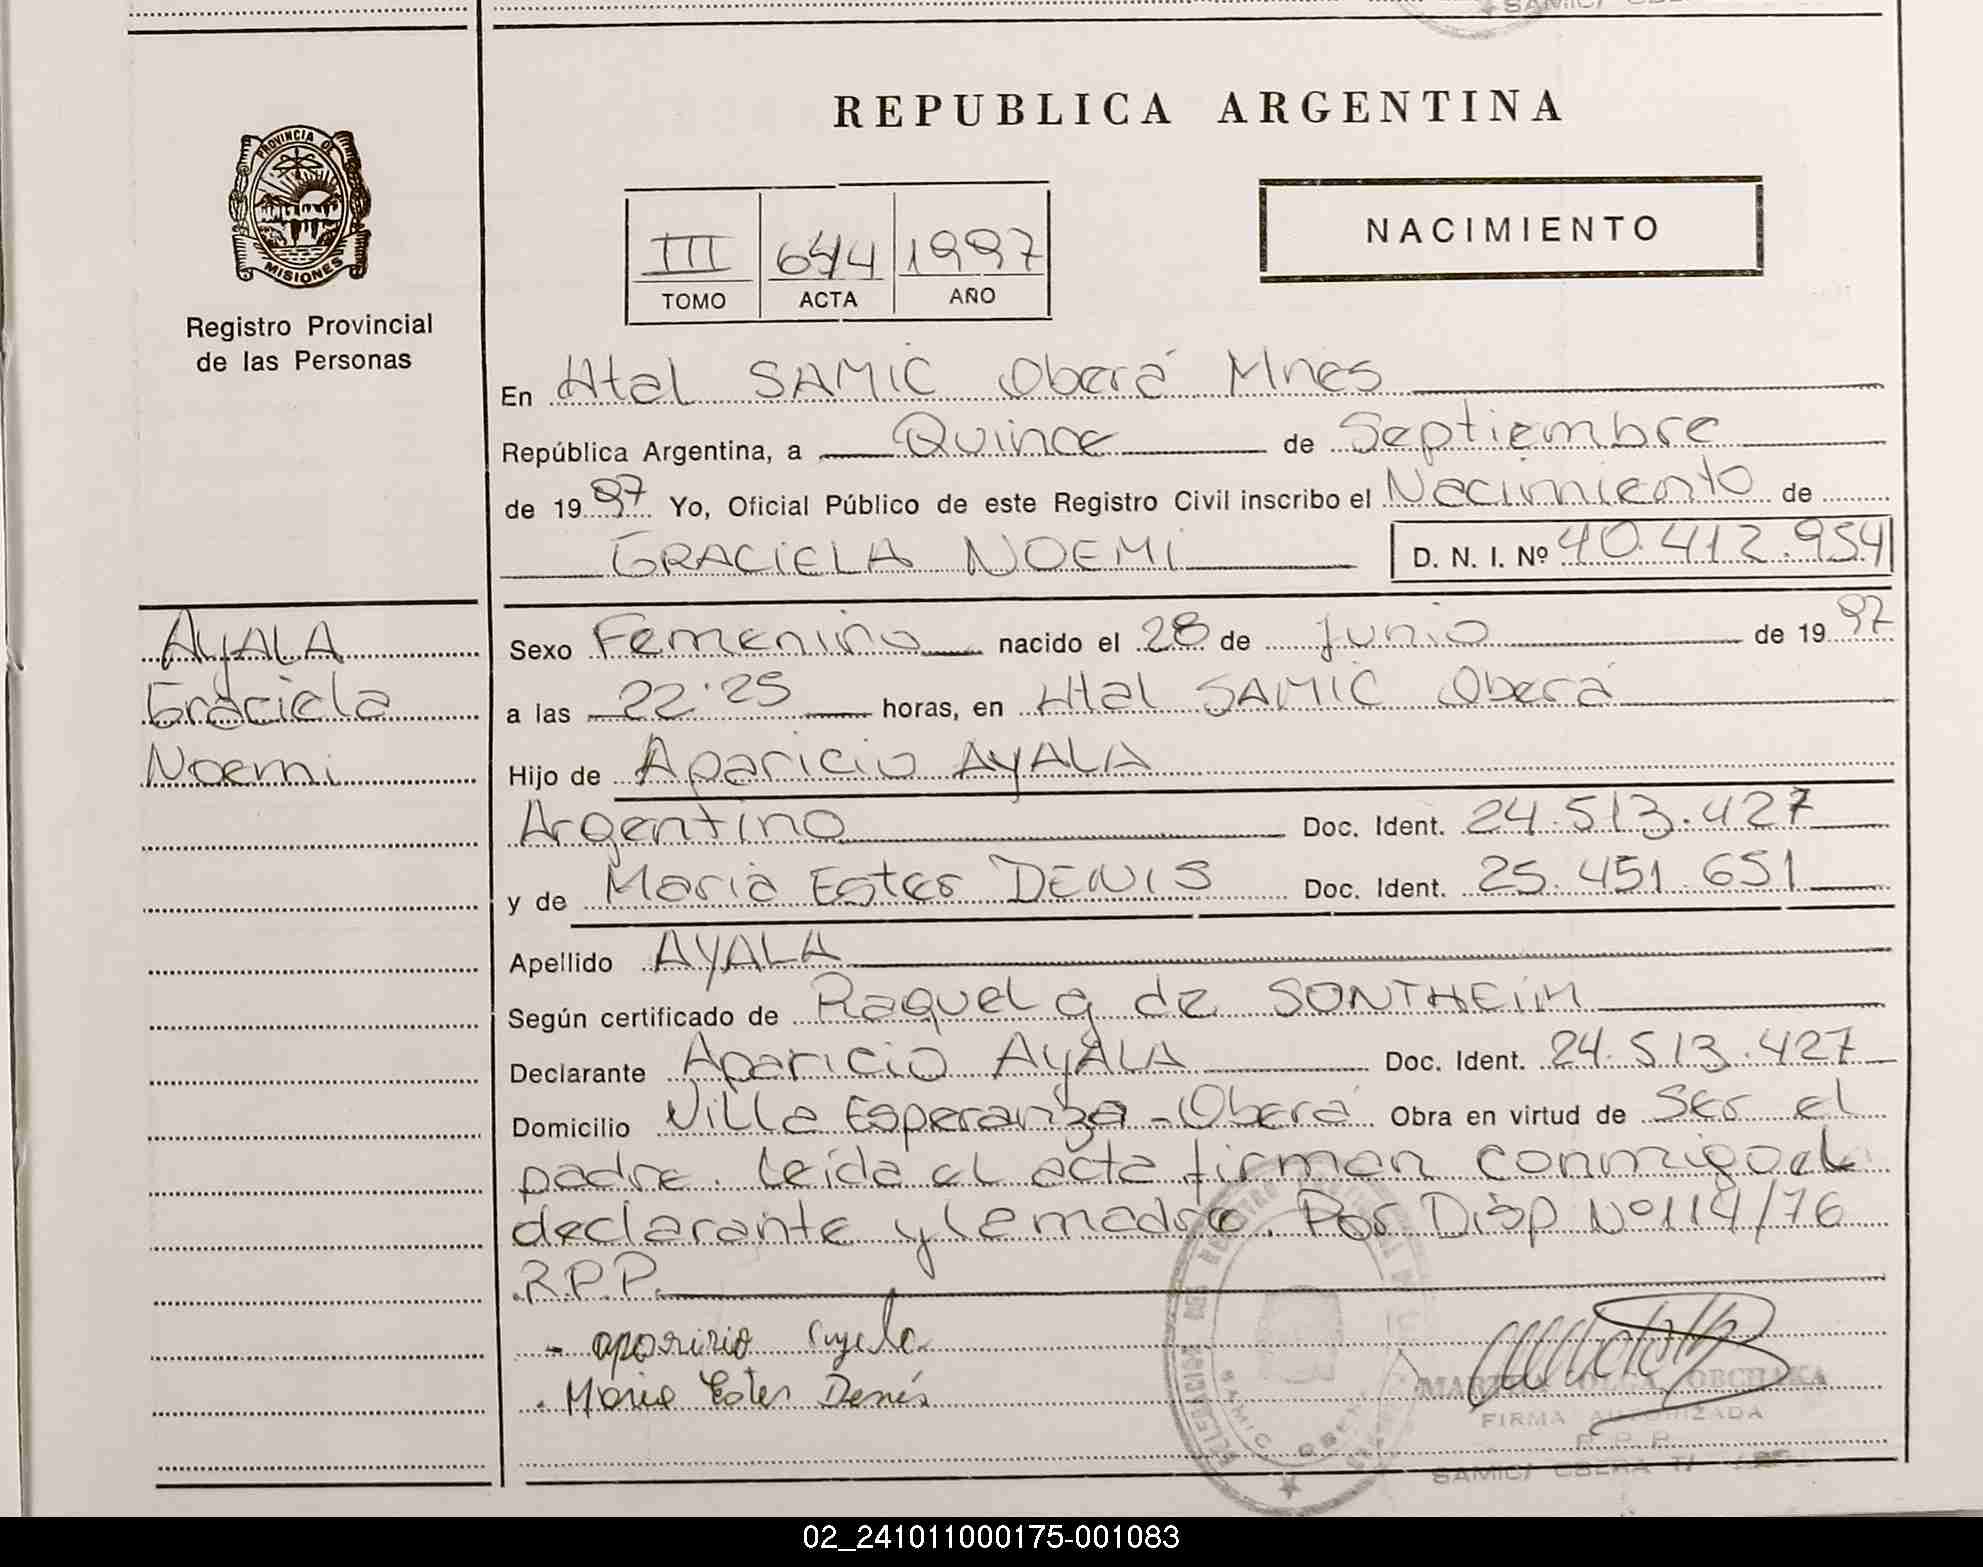 REPUBLICA ARGENTINA
PROVINCIA DE
MISIONES
Registro Provincial
de las Personas
III 644 1997
TOMO ACTA AÑO
NACIMIENTO
En Htal SAMIC Oberá Mnes
República Argentina, a Quince de Septiembre
de 1997 Yo, Oficial Público de este Registro Civil inscribo el Nacimiento de
GRACIELA NOEMI D. N. I. Nº 40.412.954
AYALA
Graciela
Noemi
Sexo Femenino nacido el 28 de Junio de 1997
a las 22:25 horas, en Htal SAMIC Oberá
Hijo de Aparicio AYALA
Argentino Doc. Ident. 24.513.427
y de Maria Ester DENIS Doc. Ident. 25.451.651
Apellido AYALA
Según certificado de Raquel G de SONTHEIM
Declarante Aparicio AYALA Doc. Ident. 24.513.427
Domicilio Villa Esperanza - Oberá Obra en virtud de Ser el
padre. Leída el acta firman conmigo el
declarante y la madre. Por Disp Nº 114/76
R.P.P.
- aparicio ayala
. Maria Ester Denis
FIRMA AUTORIZADA
R. P. P.
SAMIC/ OBERA
02_241011000175-001083